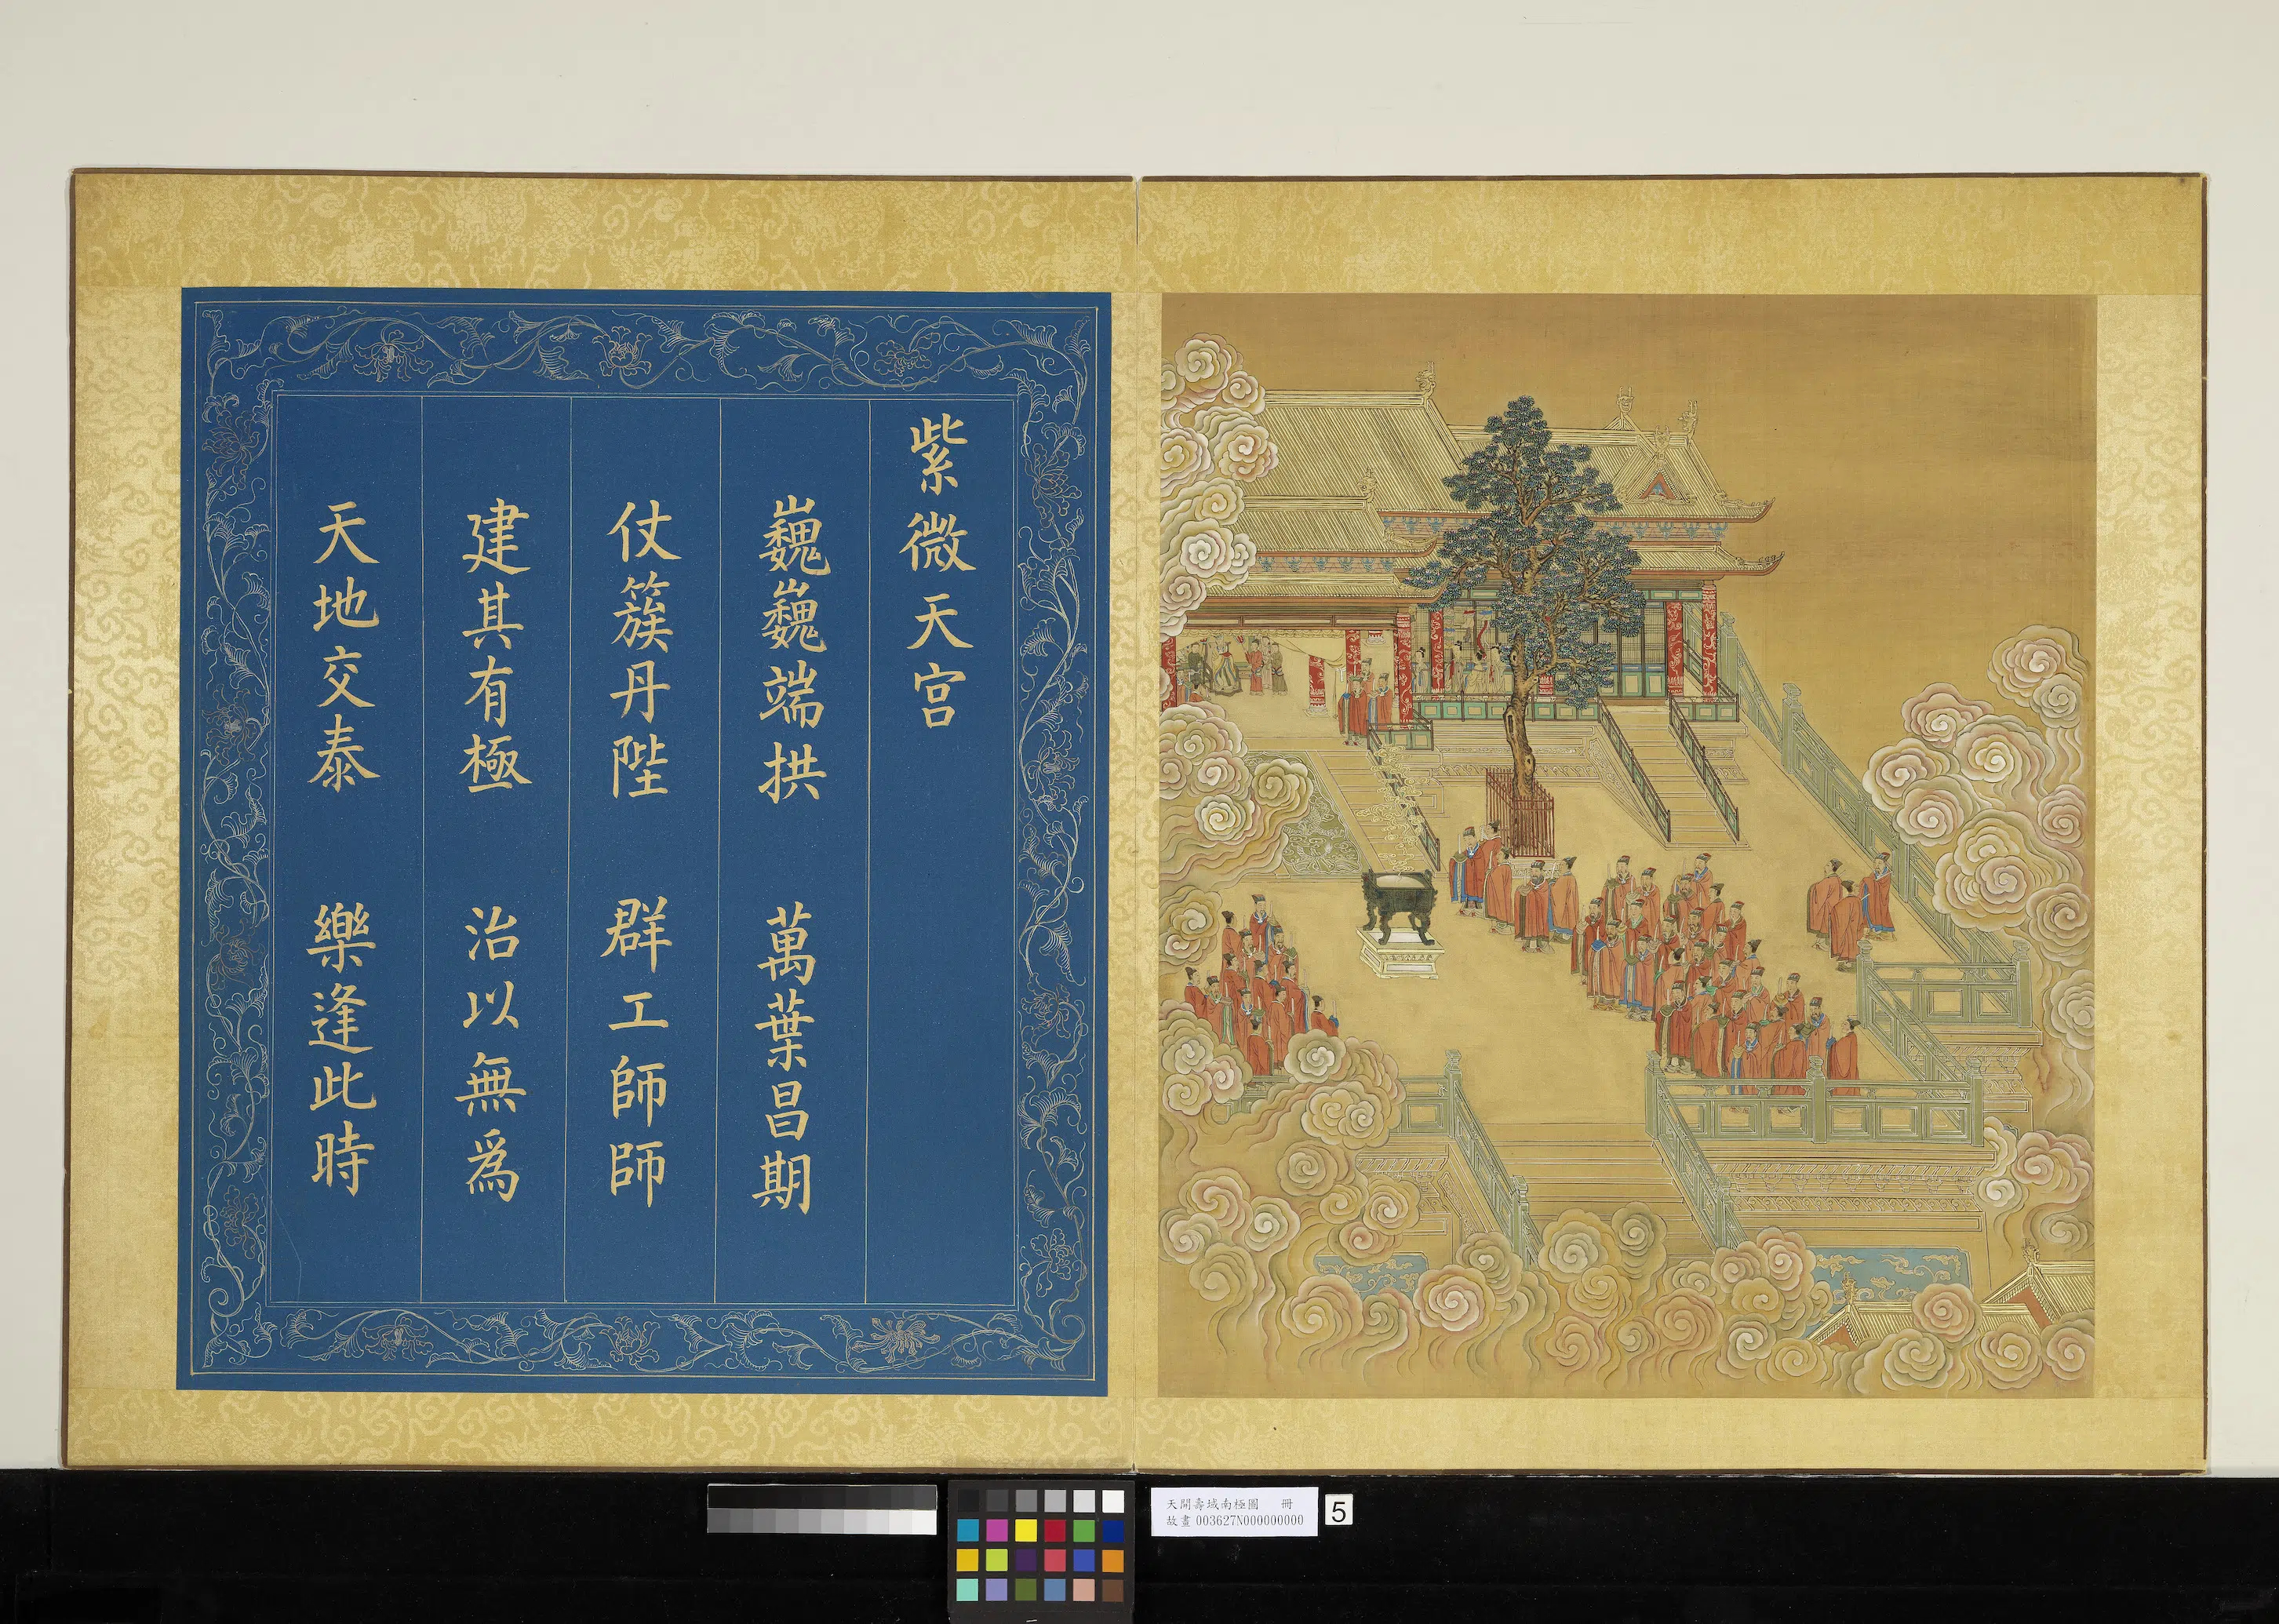 紫微天宮
巍巍端拱 萬葉昌期
仗簇丹陛 群工師師
建其有極 治以無為
天地交泰 樂逢此時
天開壽域南極圖 冊
故畫 003627N000000000
5